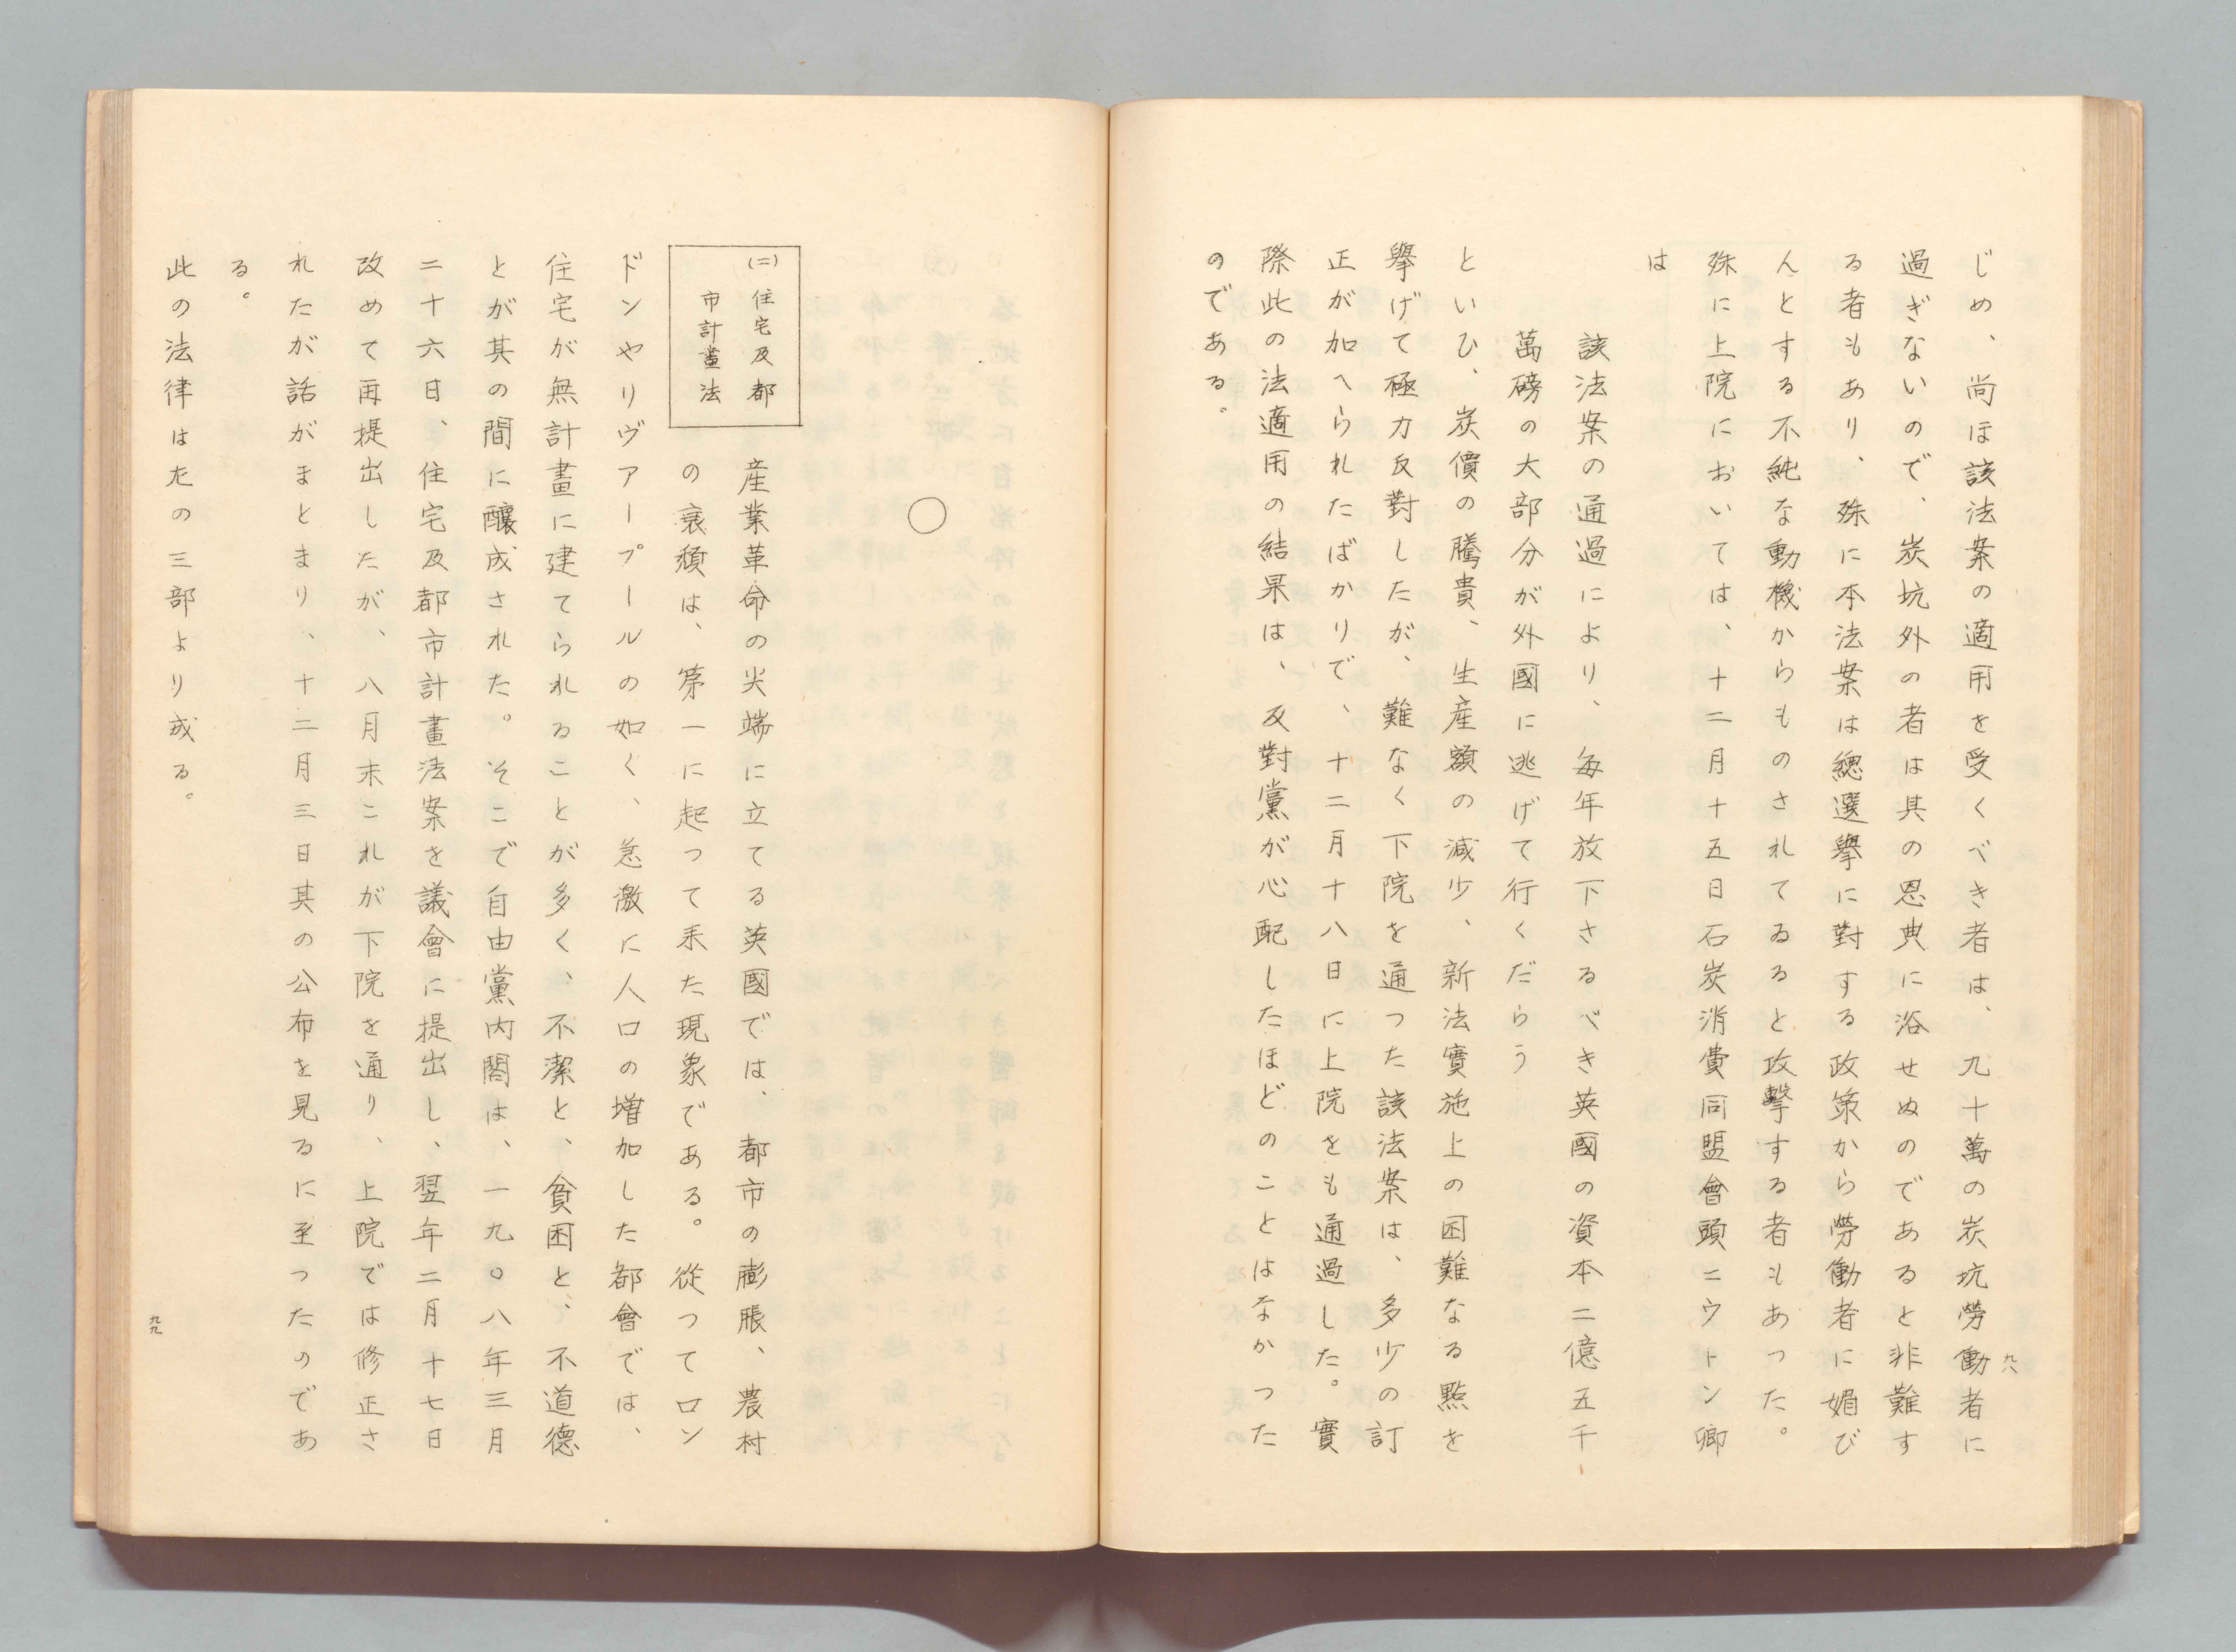 じめ、尚ほ該法案の適用を受くべき者は、九十萬の炭坑勞働者に
過ぎないので、炭坑外の者は其の恩典に浴せぬのであると非難す
る者もあり、殊に本法案は總選擧に對する政策から勞働者に媚び
んとする不純な動機からものされてゐると攻擊する者もあつた。
殊に上院においては、十二月十五日石炭消費同盟會頭ニウトン卿
は
該法案の通過により、每年放下さるべき英國の資本二億五千
萬磅の大部分が外國に逃げて行くだらう
といひ、炭價の騰貴、生産額の減少、新法實施上の困難なる點を
擧げて極力反對したが、難なく下院を通つた該法案は、多少の訂
正が加へられたばかりで、十二月十八日に上院をも通過した。實
際此の法適用の結果は、反對黨が心配したほどのことはなかつた
のである。
九八
○
(二)住宅及都
市計畫法
産業革命の尖端に立てる英國では、都市の膨脹、農村
の衰頽は、第一に起つて来た現象である。從つてロン
ドンやリヴアープールの如く、急激に人口の增加した都會では、
住宅が無計畫に建てられることが多く、不潔と、貧困と、不道德
とが其の間に釀成された。そこで自由黨內閣は、一九〇八年三月
二十六日、住宅及都市計畫法案を議會に提出し、翌年二月十七日
改めて再提出したが、八月末これが下院を通り、上院では修正さ
れたが話がまとまり、十二月三日其の公布を見るに至つたのであ
る。
此の法律は左の三部より成る。
九九